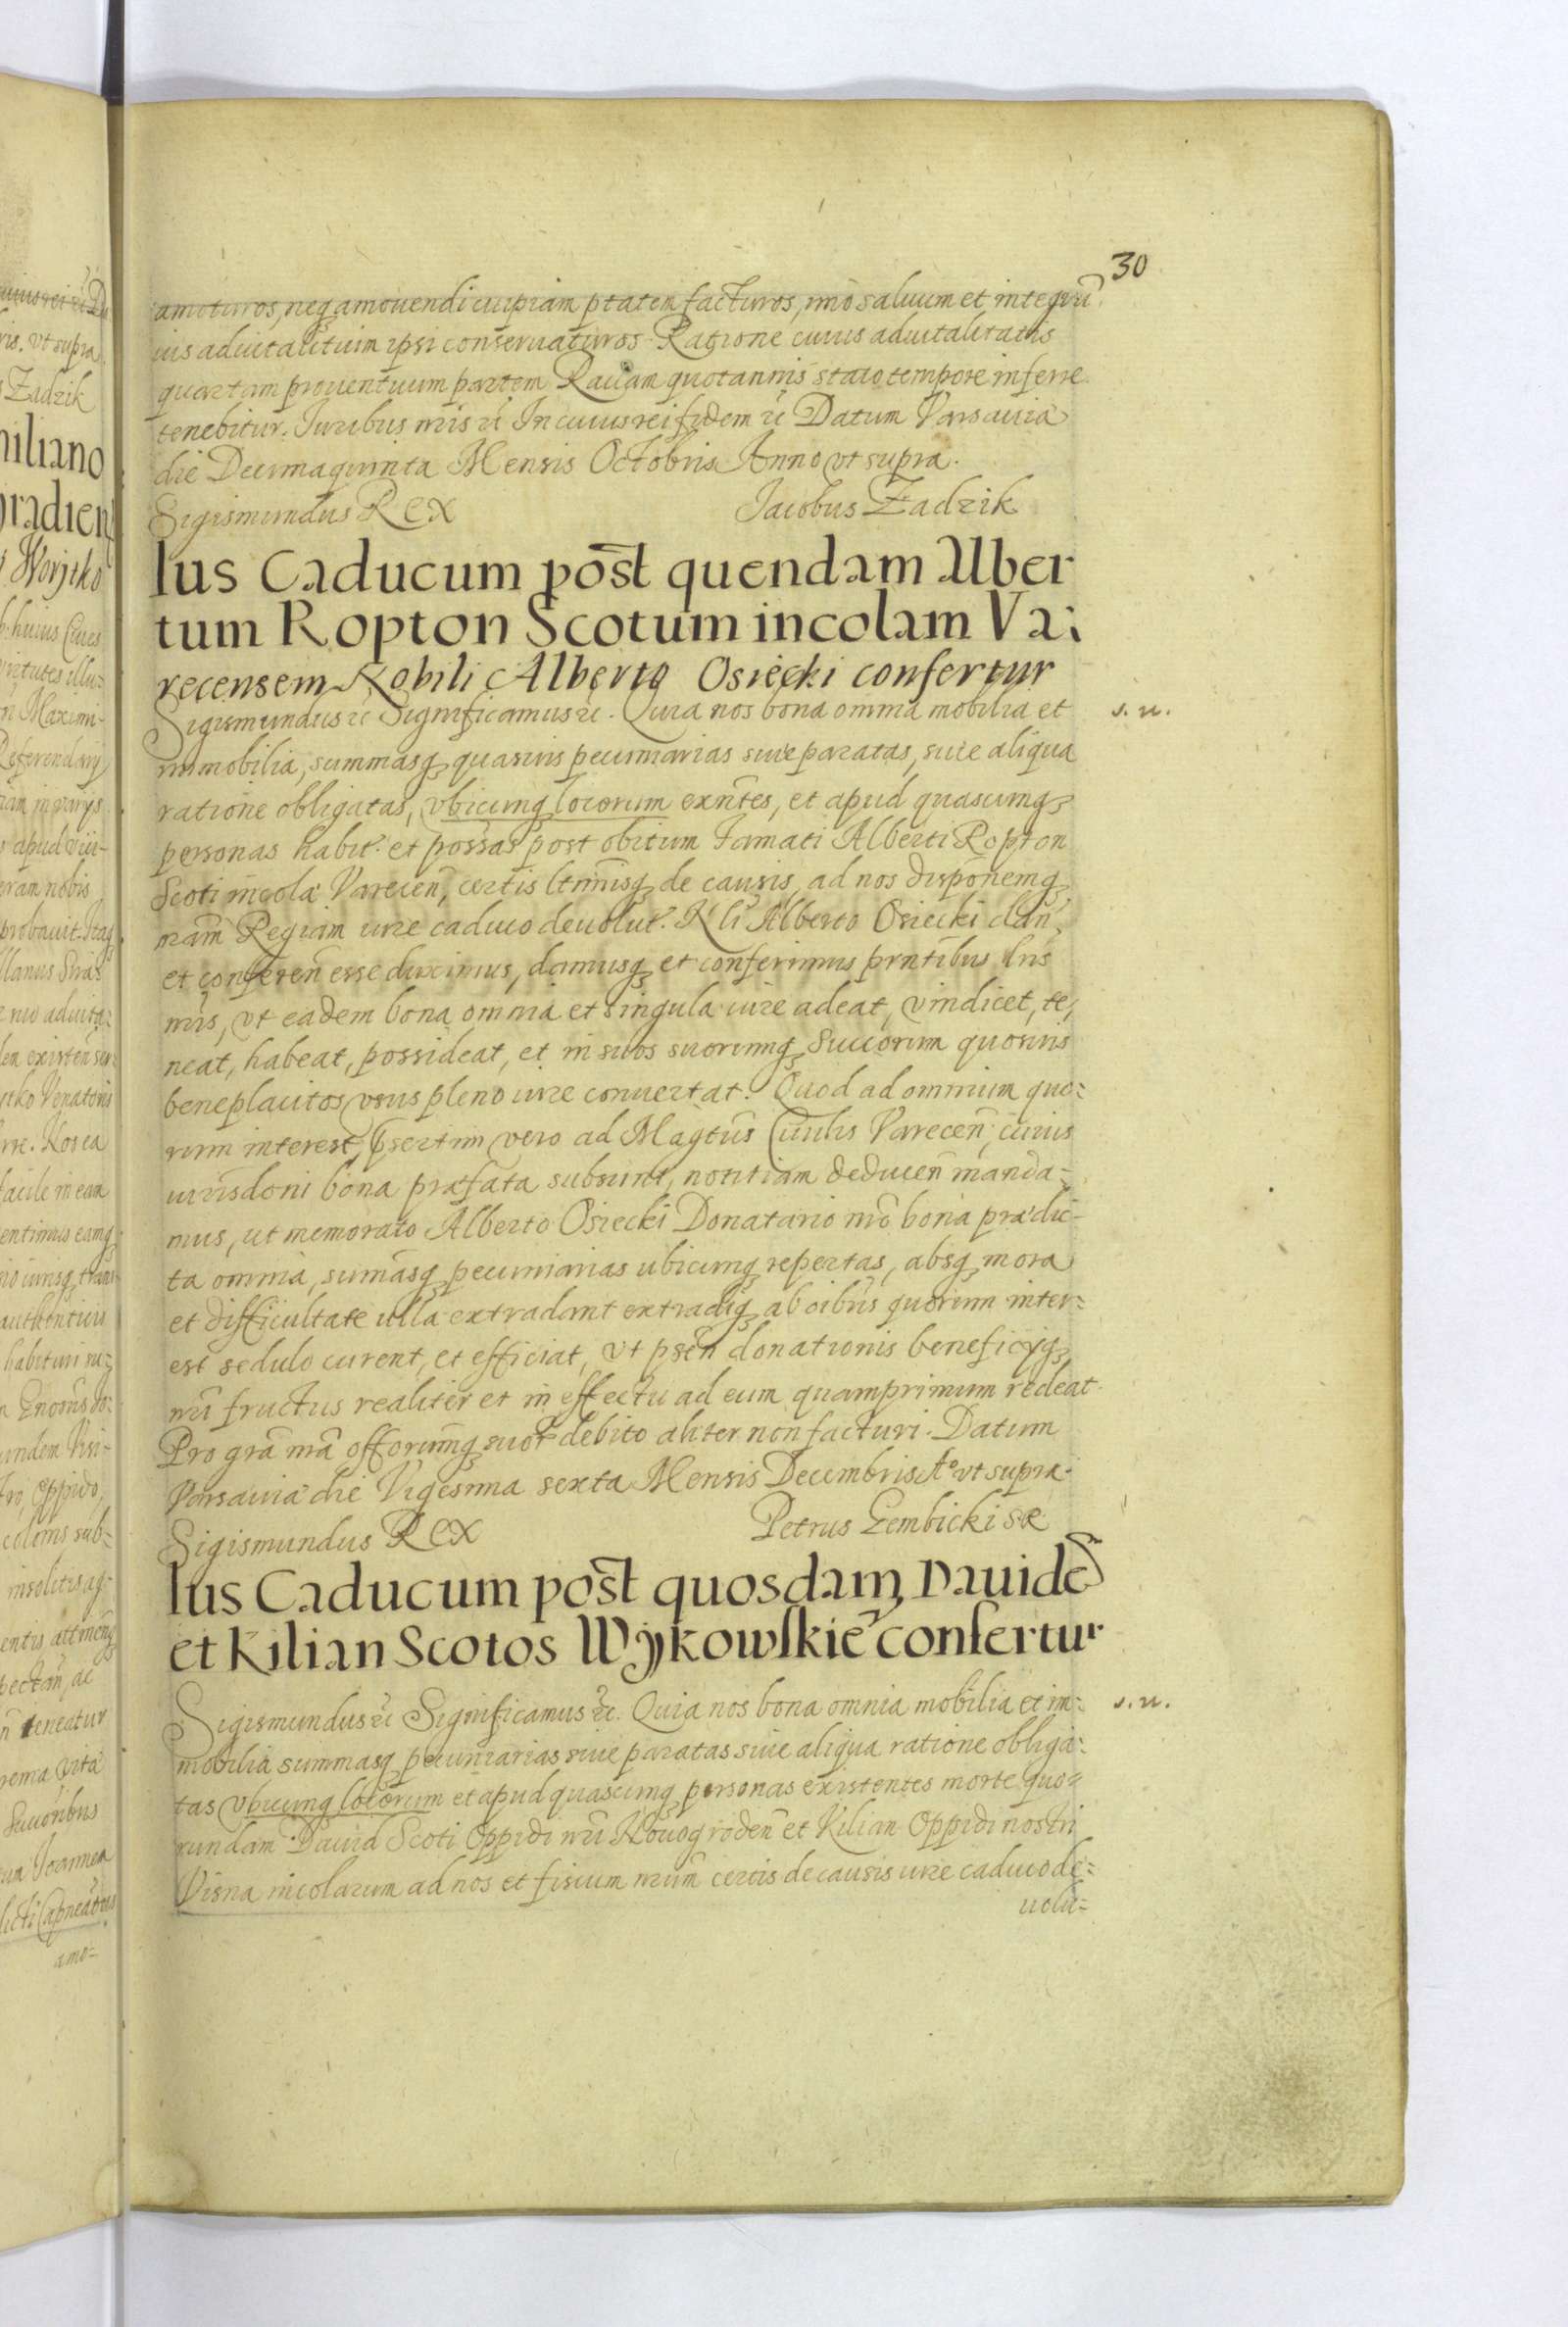 30
amoturos, neq amouendi cuipiam ptatem facturos, imo saluum et integrū
ius aduitalitium ipsi conseruaturos. Ratione cuius aduitalitatis
quartam prouentuum partem Rauam quotannis stato tempore inferre
tenebitur. Iuribus nris rc̄ In cuius rei fidem rc̄ Datum Varsauiæ
die Decimaquinta Mensis Octobris Anno vt supra.
Sigismundus Rex Jacobus Zadzik
Ius Caducum post quendam Alber
tum Ropton Scotum incolam Va:
recensem Nobili Alberto Osiecki confertur
Sigismundus rc Significamus rc. Quia nos bona omnia mobilia et
s. n.
immobilia, summasq quasuis pecuniarias siue paratas, siue aliqua
ratione obligatas, vbicunq locorum exntes, et apud quascunq
personas habit. et possas post obitum famati Alberti Ropton
Scoti incolæ Varecen, certis ltimisq de causis ad nos disponemq
nram Regiam iure caduco deuolut. Nli Alberto Osiecki dan,
et conferen esse duximus, damusq et conferimus prntibus lris
nris, vt eadem bona omnia et singula iure adeat, vindicet, te,
neat, habeat, possideat, et in suos suorumq Succorum quosuis
beneplacitos vsus pleno iure conuertat. Quod ad omnium quo:
rum interest, psertim vero ad Magtus Ciuilis Varecen, cuius
iurisdoni bona præfata subsunt, notitiam deducen manda-
mus, ut memorato Alberto Osiecki Donatario nro bona prædic-
ta omnia, sumasq pecuniarias ubicunq repertas, absq mora
et difficultate ulla extradant extradiq ab oibus quorum inter:
est sedulo curent, et efficiat, vt psen donationis beneficijq,
nri fructus realiter et in effectu ad eum quamprimum redeat.
Pro gra nra offorumq suor debito aliter non facturi. Datum
Varsauiæ die Vigesima sexta Mensis Decembris Aº vt supra.
Sigismundus Rex Petrus Gembicki SR
Ius Caducum post quosdam Dauidē
et Kilian Scotos Wykowskiē confertur
Sigismundus rc̄ Significamus rc̄. Quia nos bona omnia mobilia et im:
s. n.
mobilia summasq pecuniarias siue paratas siue aliqua ratione obliga:
tas vbicunq locorum et apud quascunq personas existentes morte quo:
rundam Dauid Scoti Oppidi nri Nouogroden et Kilian Oppidi nostri
Visna incolarum ad nos et fiscum nrum certis de causis iure caduco de:
uolu=